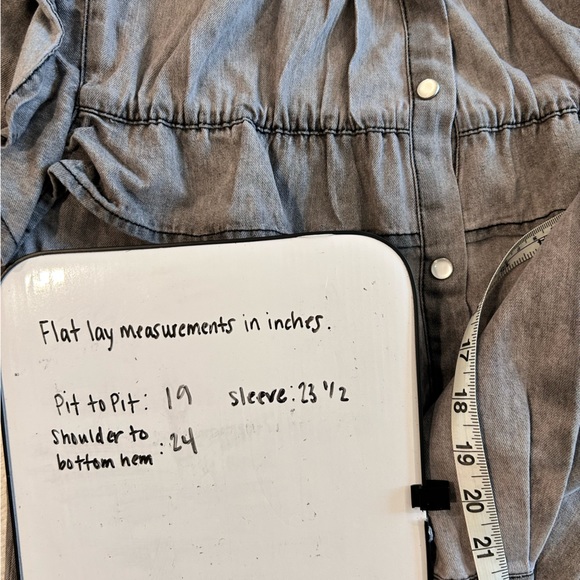 Flat lay measurements in inches.
Pit to Pit: 19 sleeve: 23 1/2
Shoulder to
bottom hem : 24
17
18
19
20
21